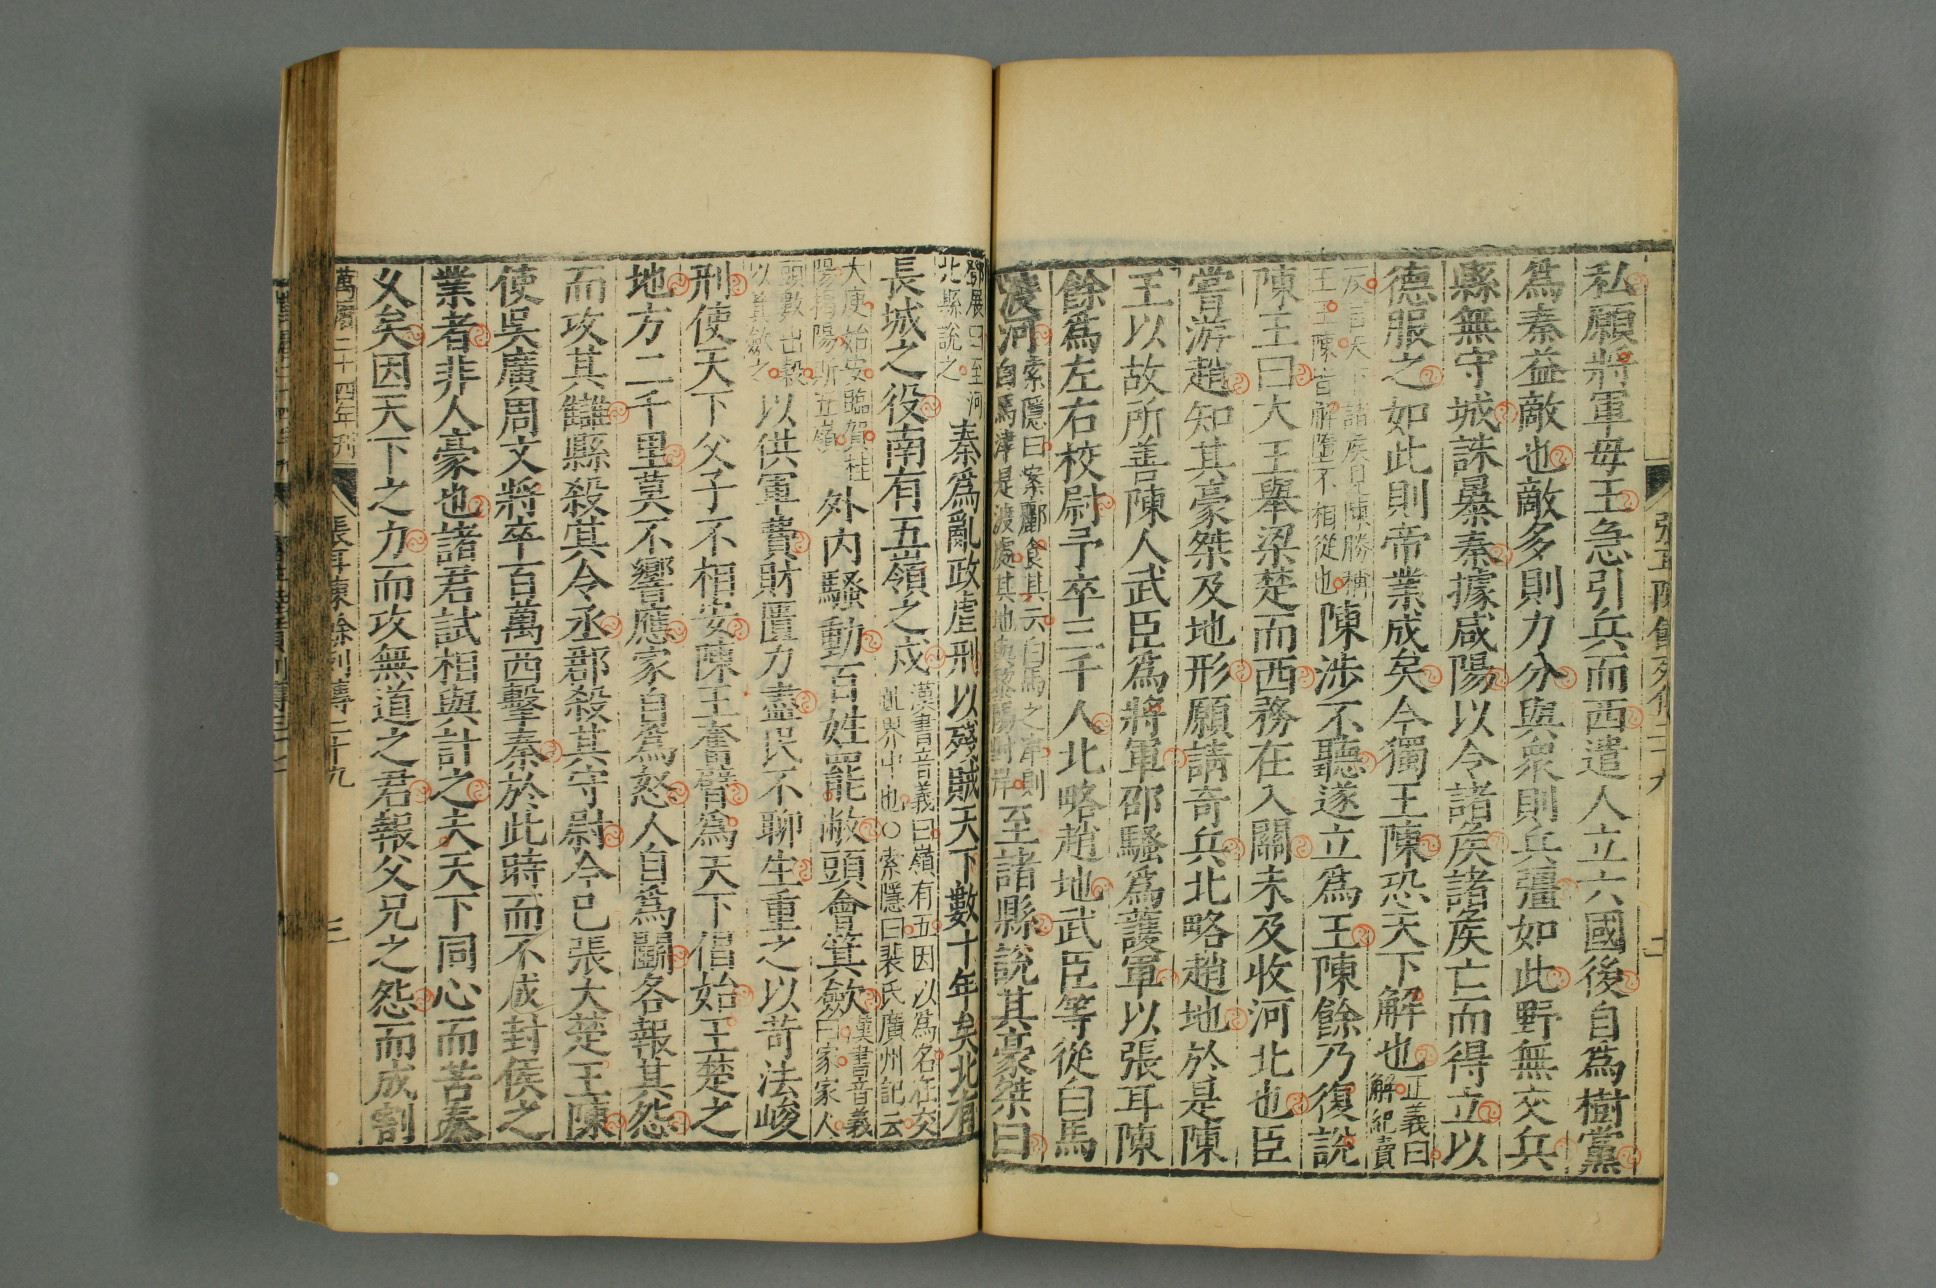 私願將軍毋王急引兵而西遣人立六國後自爲樹黨
爲秦益敵也敵多則力分與衆則兵彊如此野無交兵
縣無守城誅暴秦據咸陽以令諸矦諸矦亡而得立以
德服之如此則帝業成矣今獨王陳恐天下解也正義曰解紀賣
反言天下諸矦見陳勝稱
王王陳皆解墮不相從也陳涉不聽遂立爲王陳餘乃復說
陳王曰大王舉梁楚而西務在入關未及收河北也臣
嘗游趙知其豪桀及地形願請奇兵北略趙地於是陳
王以故所善陳人武臣爲將軍邵騷爲護軍以張耳陳
餘爲左右校尉予卒三千人北略趙地武臣等從白馬
渡河索隱曰案酈食其云白馬之津則
白馬津是渡處其地與黎陽對岸至諸縣說其豪桀曰
鄧展曰至河
北縣說之秦爲亂政虐刑以殘賊天下數十年矣北有
長城之役南有五嶺之戍漢書音義曰嶺有五因以爲名在交
阯界中也○索隱曰裴氏廣州記云
大庾始安臨賀桂
陽揭陽斯五嶺外内騷動百姓罷敝頭會箕斂漢書音義曰家家人
頭數出穀
以箕斂之以供軍費財匱力盡民不聊生重之以苛法峻
刑使天下父子不相安陳王奮臂爲天下倡始王楚之
地方二千里莫不響應家自爲怒人自爲鬭各報其怨
而攻其讎縣殺其令丞郡殺其守尉今已張大楚王陳
使吳廣周文將卒百萬西擊秦於此時而不成封侯之
業者非人豪也諸君試相與計之夫天下同心而苦秦
久矣因天下之力而攻無道之君報父兄之怨而成割
萬曆二十四年刊
張耳陳餘列傳二十九
三